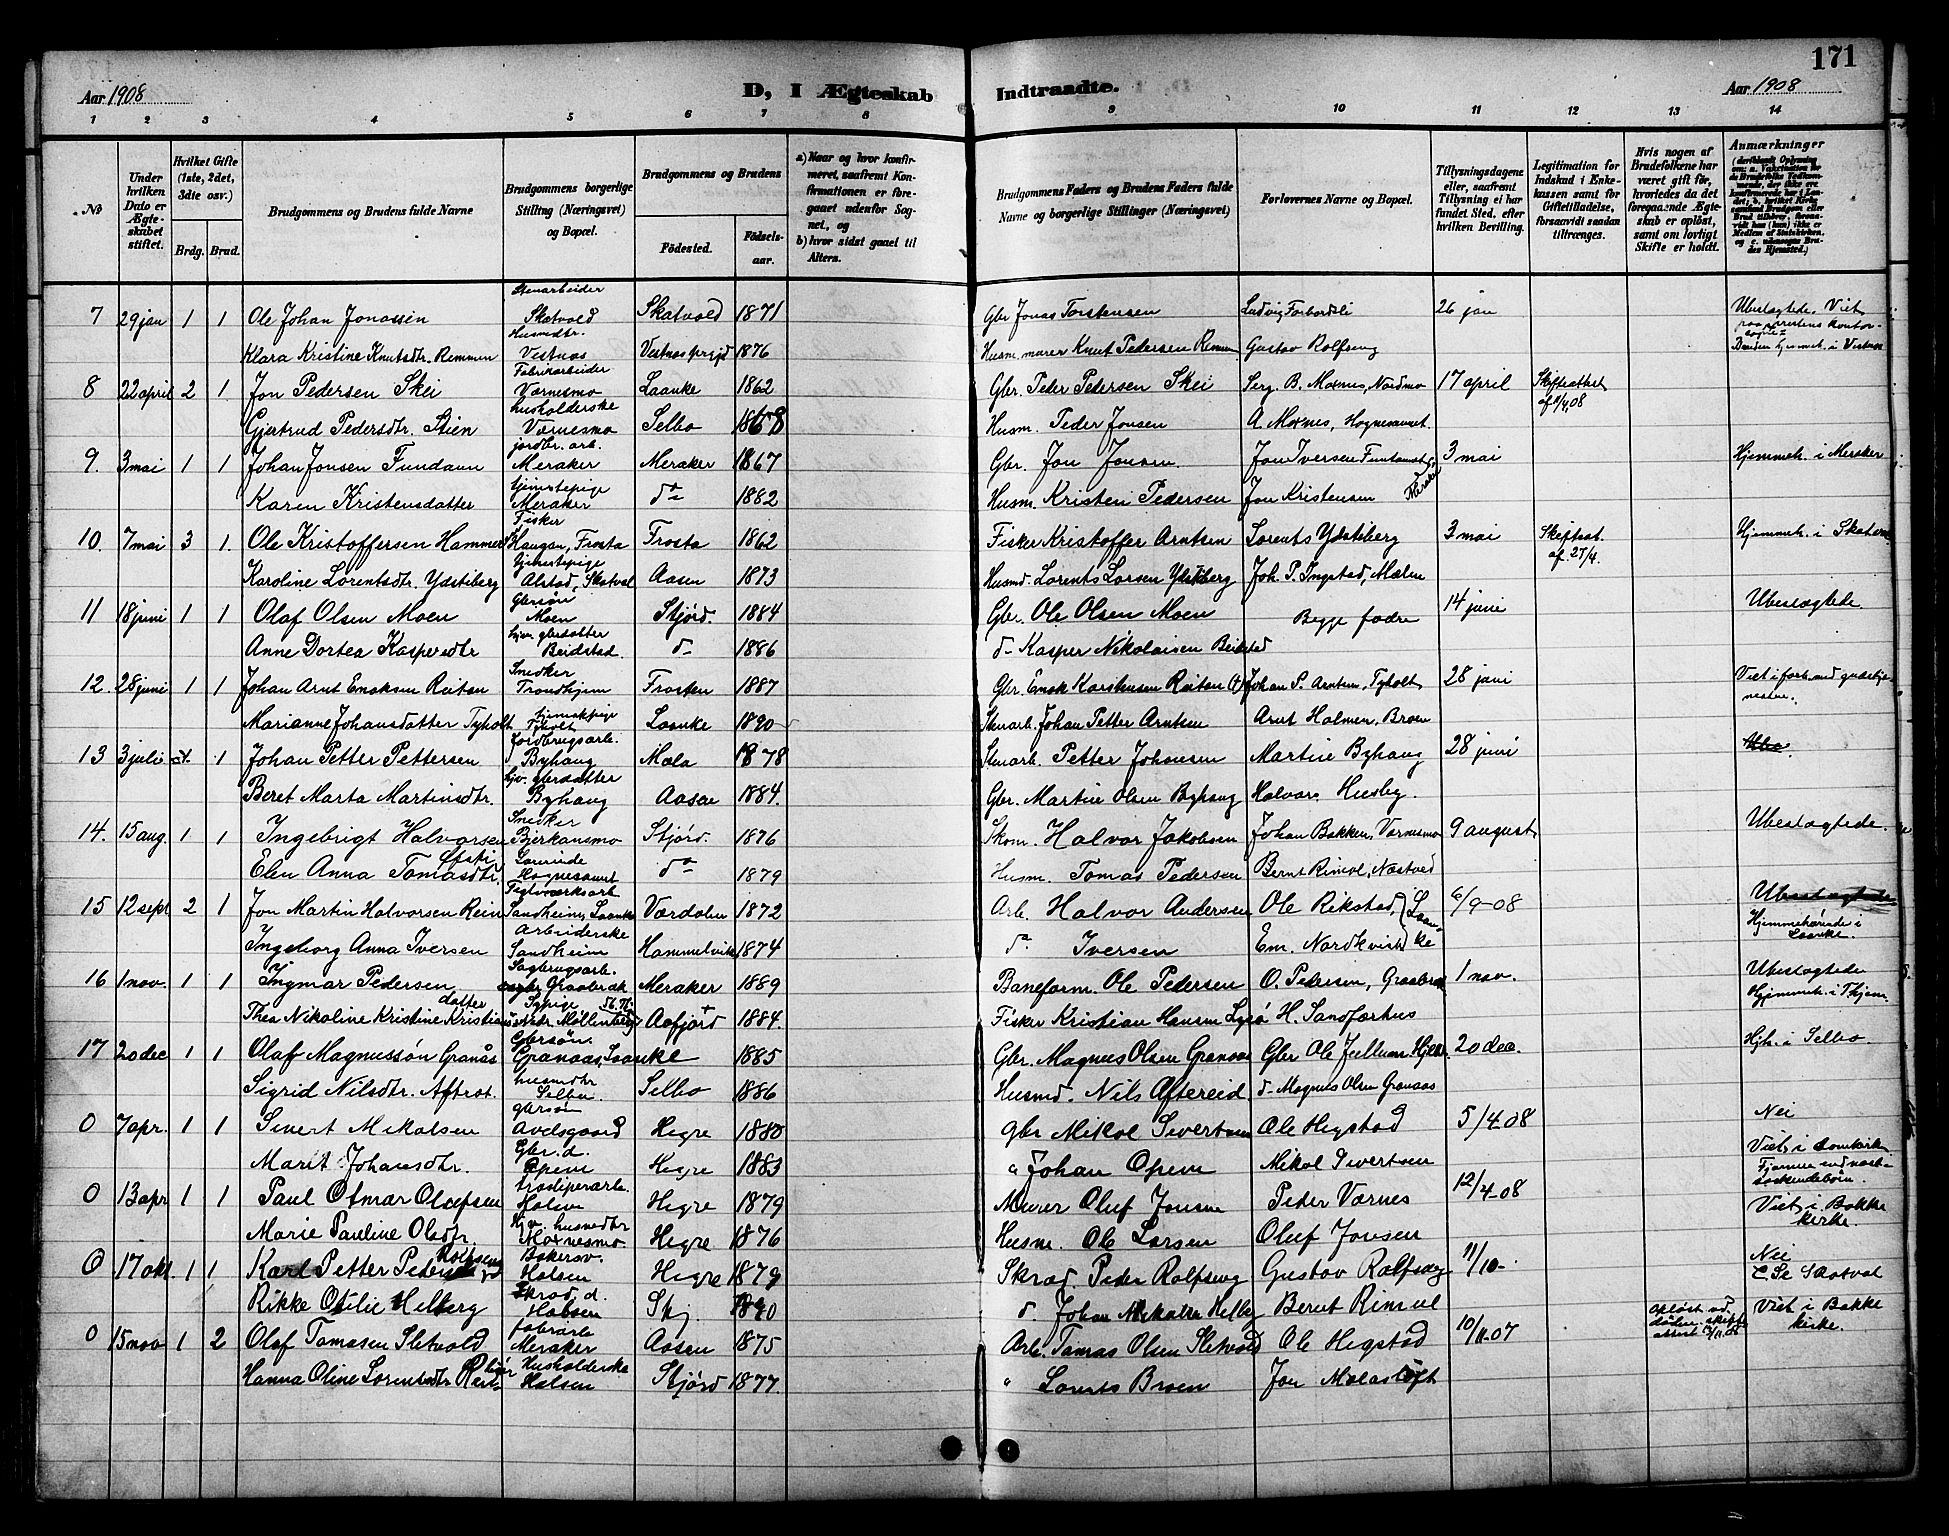 171
Aar 1908
D, I Ægteskab Indtraadte.
Aar 1908
1 2 3 4 5 6 7 8 9 10 11 12 13 14
No
Under hvilken Dato er Ægteskabet stiftet.
Hvilket Gifte (1ste, 2det, 3die osv.)
Brdg. Brud.
Brudgommens og Brudens fulde Navne
Brudgommens borgerlige Stilling (Næringsvei) og Bopæl.
Brudgommens og Brudens
Födested.
Födselsaar.
a) Naar og hvor konfirmeret, saafremt Konfirmationen er foregaaet udenfor Sognet, og
b) hvor sidst gaaet til Alters.
Brudgommens Faders og Brudens Faders fulde Navne og borgerlige Stillinger (Næringsvei)
Forlovernes Navne og Bopæl.
Tillysningsdagene eller, saafremt Tillysning ei har fundet Sted, efter hvilken Bevilling.
Legitimation for Indskud i Enkekassen samt for Giftetilladelse, forsaavidt saadan tiltrænges.
Hvis nogen af Brudefolkene har været gift før, hvorledes da det foregaaende Ægteskab er oplöst, samt om lovligt Skifte er holdt.
Anmærkninger
7 29 jan 1 1 Ole Johan Jonassen Stenarbeider Skatvold Skatvold 1871 Gbr Jonas Torstensen Ludvig Forbordsli 26 jan Ubeslægtede. Viet
Klara Kristine Knutsdtr. Remmen Husmdtr. Vestnas Vestnas prgjd 1876 Husm. murer Knut Pedersen Gustav Rolfseng
8 22 april 2 1. Jon Pedersen Skei Fabrikarbeider Værnesmo Laanke 1862 Gbr. Peder Pedersen Skei Serg. B. Moxnes, Nordmo 17 april Skifteattest
Gjertrud Pedersdtr. Stien husholderske Værnesmo Selbo 1868 Husm. Peder Jonsen A. Moxnes, Hognesaunet.
9. 3 mai 1 1 Johan Jonsen Fundaun jordbr. arb. Meraker Meraker 1867 Gbr. Jon Jonsen. Jon Iversen 3 mai Hjemmeh. i Meraker
Karen Kristensdatter tjenestepige Meraker do 1882 Husm. Kristen Pedersen Jon Kristensen Meraker
10. 7 mai 3 1. Ole Kristoffersen Hammer Fisker Haugan, Frosta Frosta 1862 Fisker Kristoffer Arntsen Lorents Ydstiberg 3 mai Skifteat. af 27/4. Hjemmeh. i
Karoline Lorentsdtr. Ydstiberg tjenestepige Alstad, Skatval Aasen 1873 Husmd. Lorents Larsen Ydstiberg Joh. P. Ingstad, Mæren
11 18 juni 1 1 Olaf Olsen Moen Gbrsøn Moen Stjørd. 1884 Gbr. Ole Olsen Moen Begge fædre 14 juni Ubeslægtede
Anne Dortea Kaspersdtr hjem. gbrdatter Beidstad. do 1886 do Kasper Nikolaisen Beidstad
12. 28 juni 1 1 Johan Arnt Enoksen Reitan Snedker Trondhjem Frosten 1887 Gbr. Enok Karstensen Reitan (+) Johan P. Arntsen, Tyholt 28 juni
Marianne Johansdatter Tyholt Tyholt Laanke 1890 Stenarb. Johan Petter Arntsen Arnt Halmen, Broen
13 3 juli 1 Johan Petter Pettersen Jordbrugsarb. Byhaug Mæla 1878 Stenarb. Petter Johansen Martin Byhaug 28 juni
Beret Marta Martinsdtr. hjv. gbrdatter Byhaug Aasen 1884. Gbr. Martin Olsen Byhaug Halvar Husby.
14. 15 aug. 1 1 Ingebrigt Halvorsen Snedker Bjerkansmo Stjørd. 1876 Skom. Halvor Jakobsen Johan Bakken, Værnesmo 9 august Ubeslægtede.
Elen Anna Tomasdtr. Hognesaunet do 1879 Husm. Tomas Pedersen Bernt Rimol, Nastved
15 12 sept 2 1 Jon Martin Halvorsen Rein Teglværksarb. Sandheim, Laanke Værdalen 1872 Arb. Halvor Andersen Ole Rikstad, Laanke 6/9-08 Hjemmehørende i Laanke.
Ingeborg Anna Iversen Arbeiderske Sandheim Hammelvik 1874 do Iversen Em. Nordkvist
16 1 nov. 1 1 Ingmar Pedersen Sagbrugsarb. Graabræk Meraker 1889 Baneform. Ole Pedersen O. Pedersen, Graabræk 1 nov. Ubeslægtede Hjemmeh. i Thjem
Thea Nikoline Kristine Kristiansdatter Sypige Nedr. Møllenberg Aafjord 1884. Fisker Kristian Hansen Lysø H. Sandfærhus
17 20 dec 1 1 Olaf Magnussøn Granås Gbrsøn. Granaas, Laanke 1885 Gbr. Magnus Olsen Granaas Gbr Ole Jullum 20 dec. Hjh. i Selbo
Sigrid Nilsdtr. Aftret. husmdtr Selbu Selbo 1886 Husmd. Nils Aftereid do Magnus Olsen Granaas
0 7 apr. 1 1 Sivert Mikalsen gbrsøn Avelsgaard Hegre 1880 gbr Mikal Sivertsen Ole Hegstad 5/4-08 Nei
Marit Johansdtr. Gbr. d. Opem Hegre 1883 " Johan Opem Mikal Sivertsen Viet i domkirk
0 13 apr 1 1 Paul Otmar Olufsen Hegre 1879 Murer Oluf Jonsen Peder Værnes 12/4-08
Marie Pauline Olsdtr. Hjv. husmdtr Moxnesmo. Hegre 1876 Husm. Ole Larsen Oluf Jonsen Viet i Bakke kirke.
0 17 okt. 1 1 Karl Petter Pedersen Rolfseng Bakersv. Halsen Hegre 1879 Skræd. Peder Rolfseng Gustav Rolfseng 11/10- Nei
Rikke Otilie Helberg Skræd. d. Halsen Stj. 1890 do Johan Mikalsen Helberg Bernt Rimul Viet i Bakke kirke.
0 15 nov 1 2 Olaf Tomasen Sletvold fabrarb Meraker Aasen 1875 Arb. Tomas Olsen Sletvold Ole Hegstad 10/11-07
Hanna Oline Lorentsdtr Husholderske Halsen Stjørd 1877. " Lorents Broen Jon